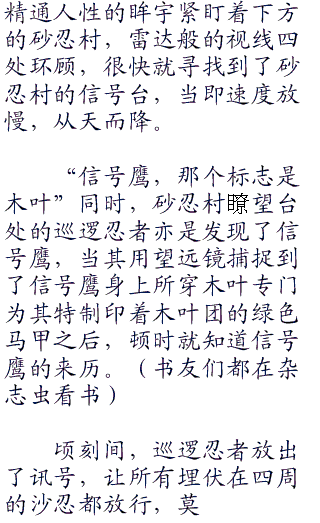 精通人性的眸宇紧盯着下方
的砂忍村，雷达般的视线四
处环顾，很快就寻找到了砂
忍村的信号台，当即速度放
慢，从天而降。
“信号鹰，那个标志是
木叶”同时，砂忍村瞭望台
处的巡逻忍者亦是发现了信
号鹰，当其用望远镜捕捉到
了信号鹰身上所穿木叶专门
为其特制印着木叶团的绿色
马甲之后，顿时就知道信号
鹰的来历。（书友们都在杂
志虫看书）
顷刻间，巡逻忍者放出
了讯号，让所有埋伏在四周
的沙忍都放行，莫